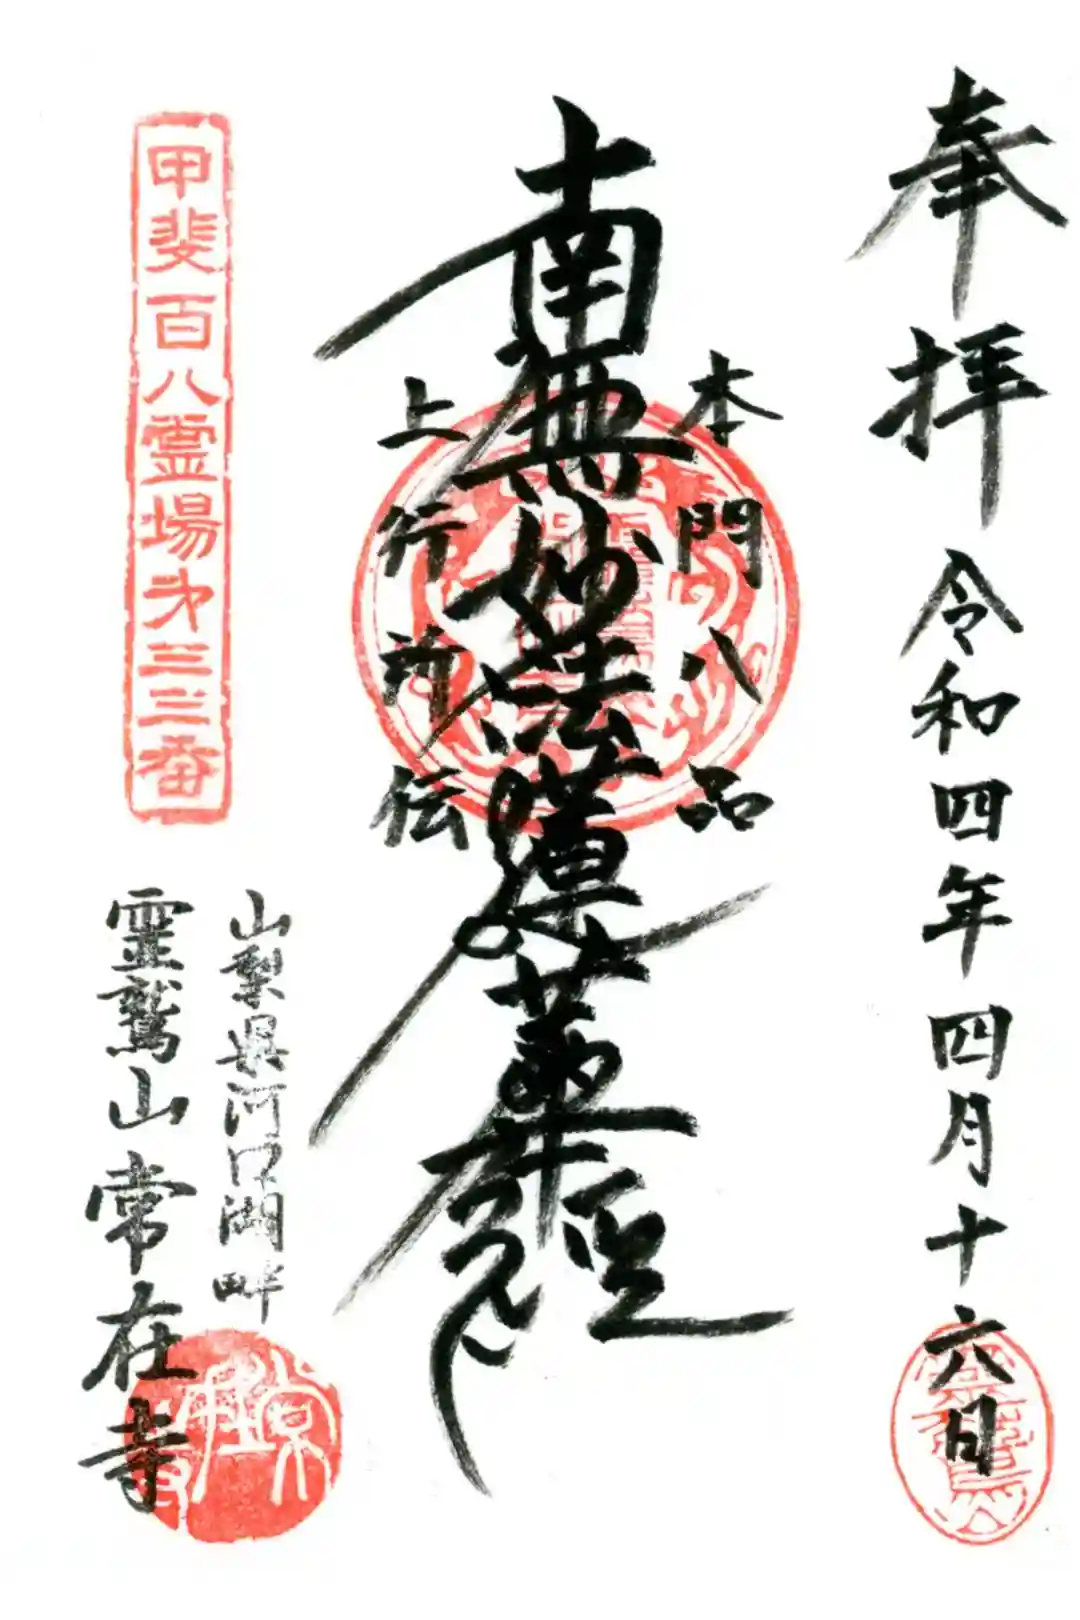 奉拝 令和四年四月十六日
本門八品
南無妙法蓮華経
上行所伝
甲斐百八霊場第三三番
山梨県河口湖畔
霊鷲山常在寺